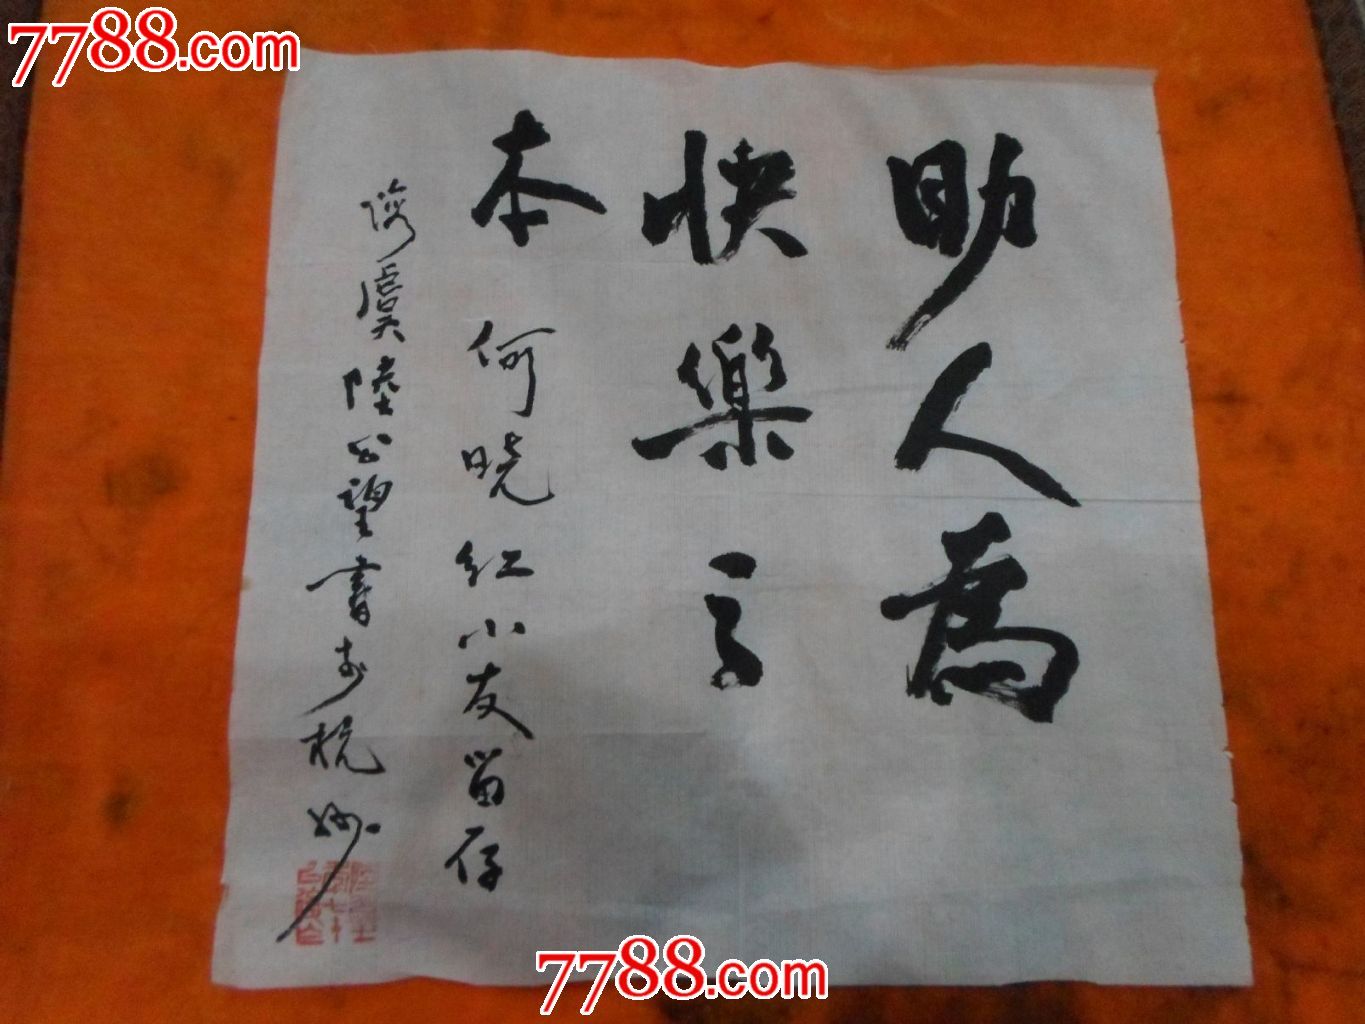 7788.com
助人爲
快樂之
本 何晓红小友留存
海虞陸公望書於杭州
7788.com